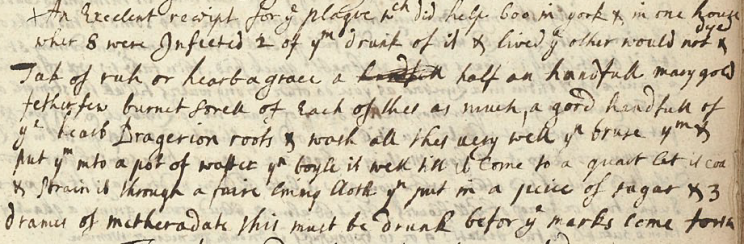 An Exelent receipt for ye plague wch did help 600 in york & in one house
wher 8 were Infected 2 of ym drunk of it & lived ye other would not & dye
Tak of ruh or hearbagrace a handfull half an handfull marygold
fetherfew burnet sorell of Each of thes as much, a good handfull of
ye hearb Dragerion roots & wash all thes uery well yn bruse ym &
put ym into a pot of watter yn boyle it well till it Come to a quart let it coa
& strain it through a faire lining Cloth yn put in a peice of sugar & 3
drames of metheradate this must be drunk befor ye marks come forth